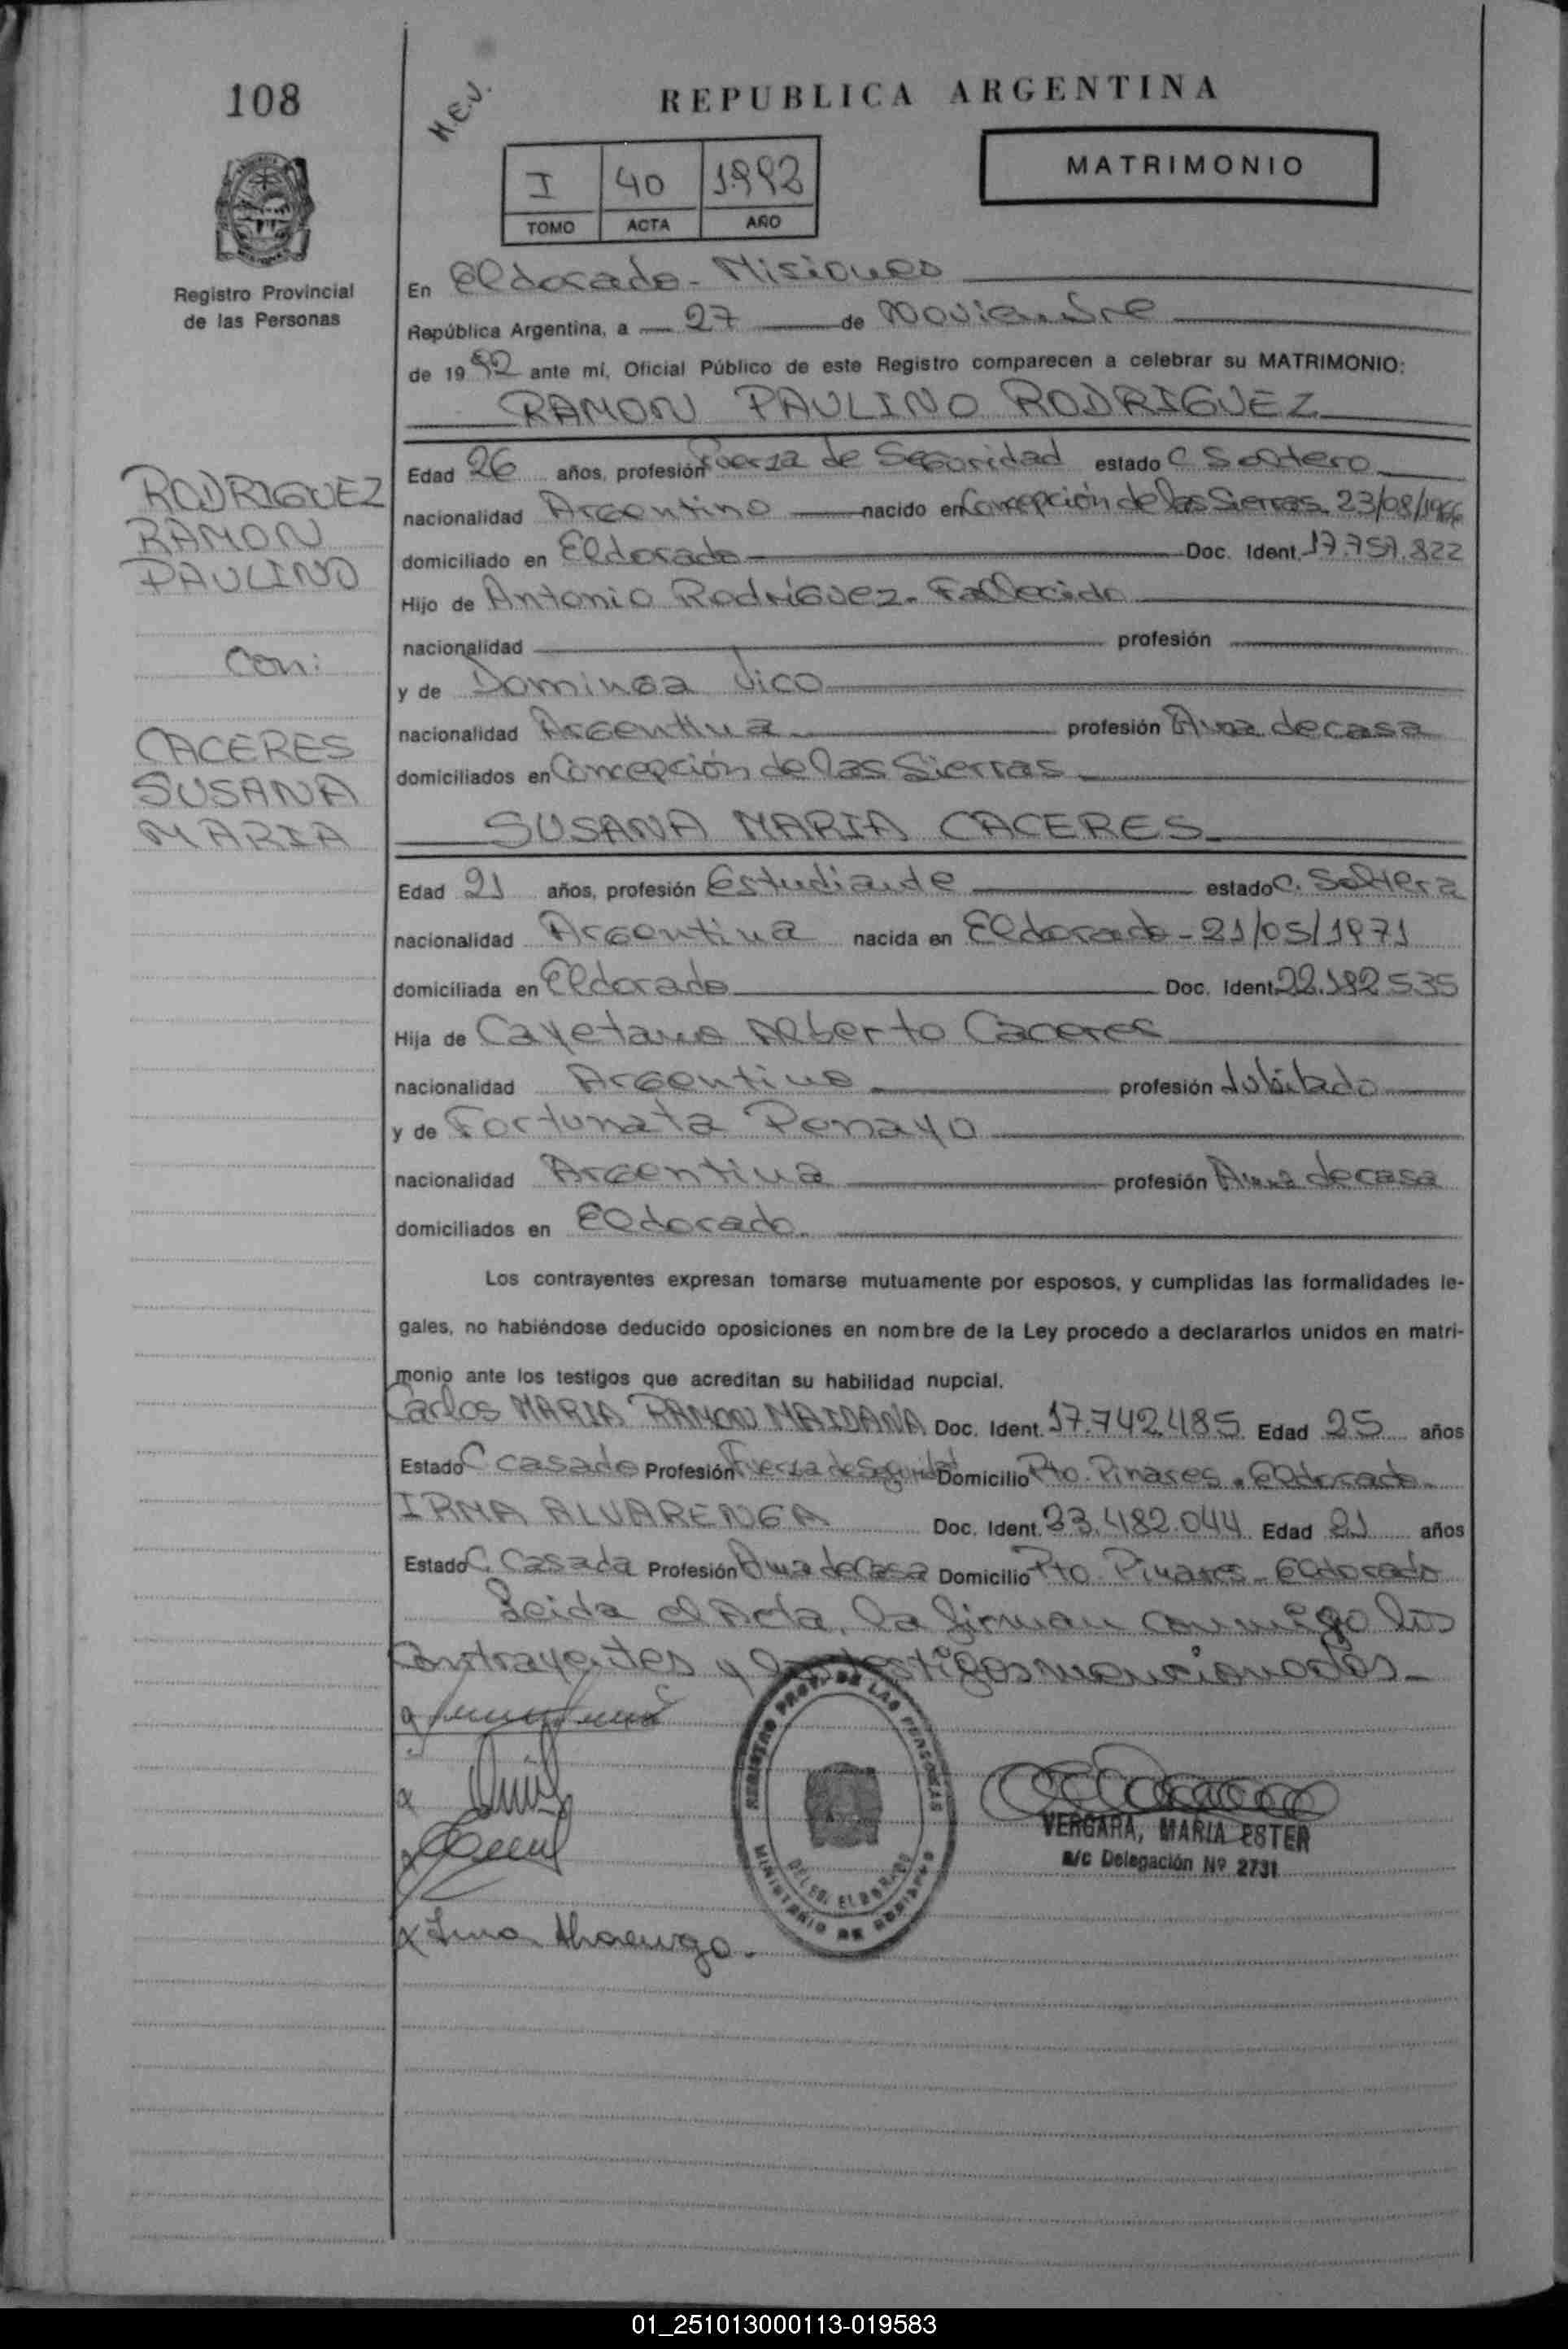 108
M.E.V.
REPUBLICA ARGENTINA
MATRIMONIO
I 40 1992
TOMO ACTA AÑO
Registro Provincial
de las Personas
En Eldorado - Misiones
República Argentina, a 27 de Noviembre
de 1992 ante mí, Oficial Público de este Registro comparecen a celebrar su MATRIMONIO:
RAMON PAULINO RODRIGUEZ
RODRIGUEZ
RAMON
PAULINO
Con:
CACERES
SUSANA
MARIA
Edad 26 años, profesión Fuerza de Seguridad estado C Soltero
nacionalidad Argentino nacido en Concepción de las Sierras 23/08/1966
domiciliado en Eldorado Doc. Ident. 17.757.822
Hijo de Antonio Rodríguez - Fallecido
nacionalidad profesión
y de Dominga Vico
nacionalidad Argentina profesión Ama de casa
domiciliados en Concepción de las Sierras
SUSANA MARIA CACERES
Edad 21 años, profesión Estudiante estado C. Soltera
nacionalidad Argentina nacida en Eldorado - 21/05/1971
domiciliada en Eldorado Doc. Ident. 22.182.535
Hija de Cayetano Alberto Caceres
nacionalidad Argentino profesión Jubilado
y de Fortunata Penayo
nacionalidad Argentina profesión Ama de casa
domiciliados en Eldorado
Los contrayentes expresan tomarse mutuamente por esposos, y cumplidas las formalidades le-
gales, no habiéndose deducido oposiciones en nombre de la Ley procedo a declararlos unidos en matri-
monio ante los testigos que acreditan su habilidad nupcial.
Carlos MARIA RAMON MAIDANA Doc. Ident. 17.742.485 Edad 25 años
Estado C casado Profesión Fuerza de Seguridad Domicilio Pto. Pinares - Eldorado
IRMA ALVARENGA Doc. Ident. 23.482.044 Edad 21 años
Estado C. Casada Profesión Ama de Casa Domicilio Pto. Pinares - Eldorado
Leida el Acta, la firman conmigo los
Contrayentes y los testigos mencionados.
REGISTRO PROV. DE LAS PERSONAS
MINISTERIO DE GOBIERNO
DELEG. ELDORADO
VERGARA, MARIA ESTER
a/c Delegación Nº 2731
x Irma Alvarenga.
01_251013000113-019583